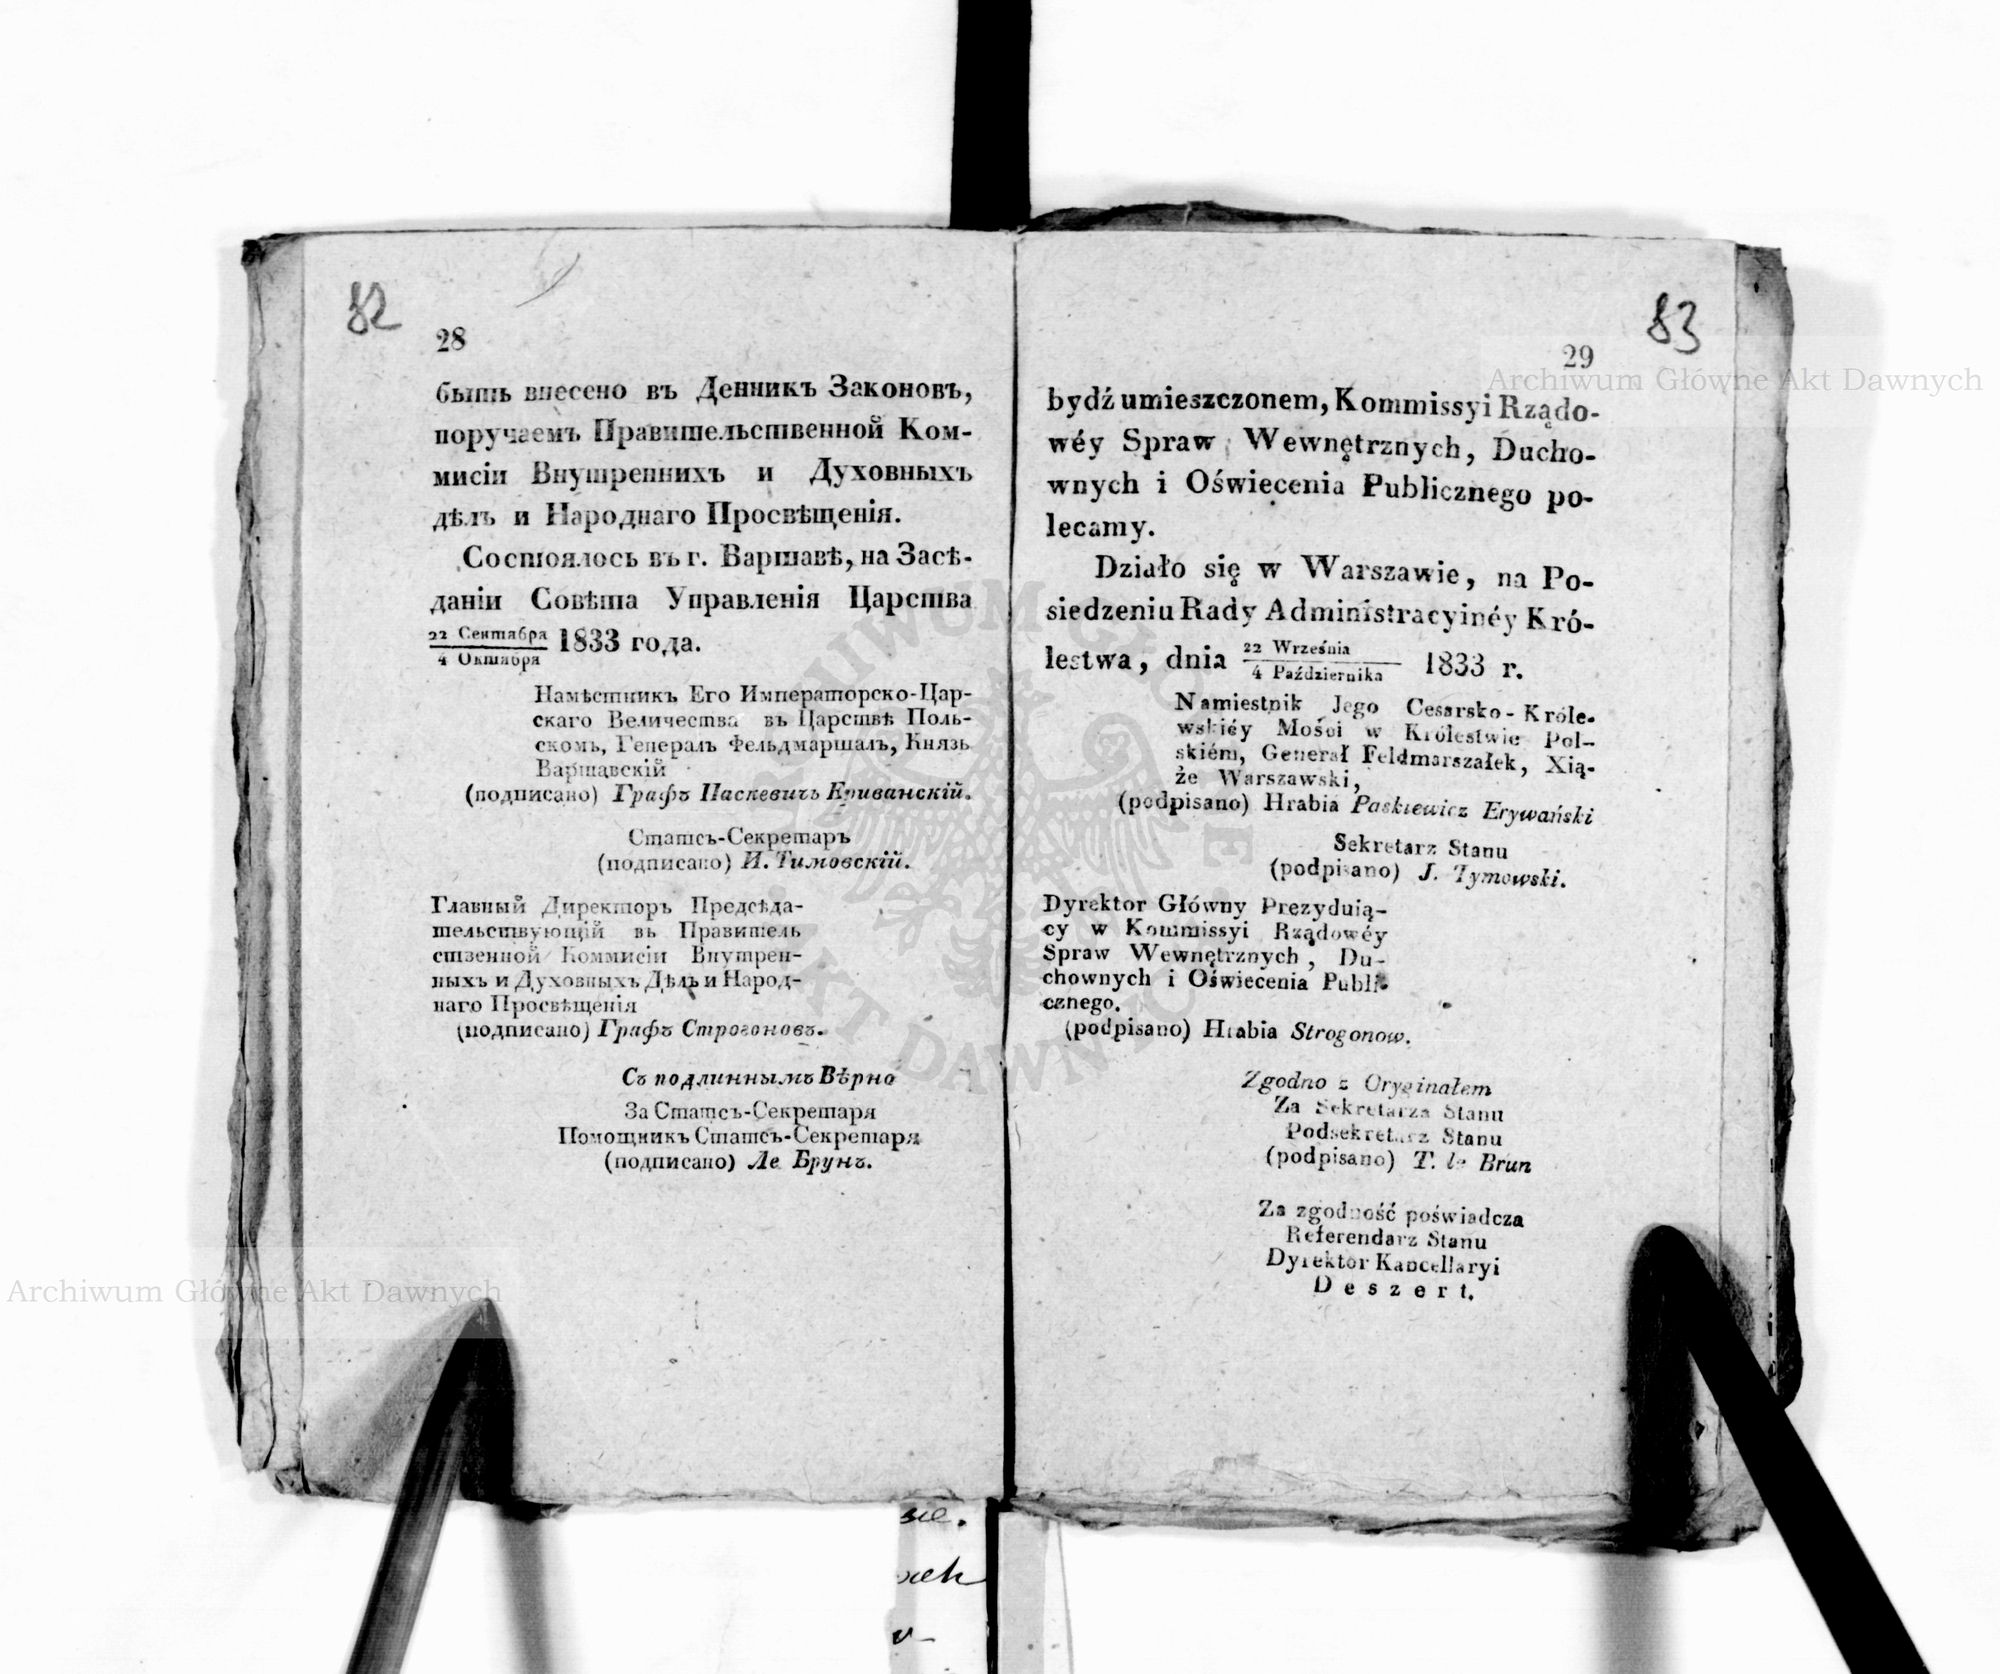 82
28
быть внесено въ Денникъ Законовъ,
поручаемъ Правительственной Ком-
мисіи Внутреннихъ и Духовныхъ
дѣлъ и Народнаго Просвѣщенія.
Состоялось въ г. Варшавѣ, на Засѣ-
даніи Совѣта Управленія Царства
22 Сентября
4 Октября 1833 года.
Намѣстникъ Его Императорско-Цар-
скаго Величества въ Царствѣ Поль-
скомъ, Генералъ Фельдмаршалъ, Князь
Варшавскій
(подписано) Графъ Паскевичъ Ериванскій.
Статсъ-Секретаръ
(подписано) И. Тимовскій.
Главный Директоръ Предсѣда-
тельствующій въ Правитель
ственной Коммисіи Внутрен-
ныхъ и Духовныхъ Дѣлъ и Народ-
наго Просвѣщенія
(подписано) Графъ Строгоновъ.
Съ подлиннымъ Вѣрно
За Статсъ-Секретаря
Помощникъ Статсъ-Секретаря
(подписано) Ле Брунъ.
83
29
bydź umieszczonem, Kommissyi Rządo-
wéy Spraw Wewnętrznych, Ducho-
wnych i Oświecenia Publicznego po-
lecamy.
Działo się w Warszawie, na Po-
siedzeniu Rady Administracyinéy Kró-
lestwa, dnia 22 Września
4 Października 1833 r.
Namiestnik Jego Cesarsko-Króle-
wskiéy Mości w Królestwie Pol-
skiém, Generał Feldmarszałek, Xią-
że Warszawski,
(podpisano) Hrabia Paskiewicz Erywański
Sekretarz Stanu
(podpisano) J. Tymowski.
Dyrektor Główny Prezyduią-
cy w Kommissyi Rządowéy
Spraw Wewnętrznych, Du-
chownych i Oświecenia Publi-
cznego.
(podpisano) Hrabia Strogonow.
Zgodno z Oryginałem
Za Sekretarza Stanu
Podsekretarz Stanu
(podpisano) T. le Brun
Za zgodność poświadcza
Referendarz Stanu
Dyrektor Kancellaryi
Deszert.
Archiwum Główne Akt Dawnych
Archiwum Główne Akt Dawnych
ARCHIWUM GŁÓWNE
AKT DAWNYCH